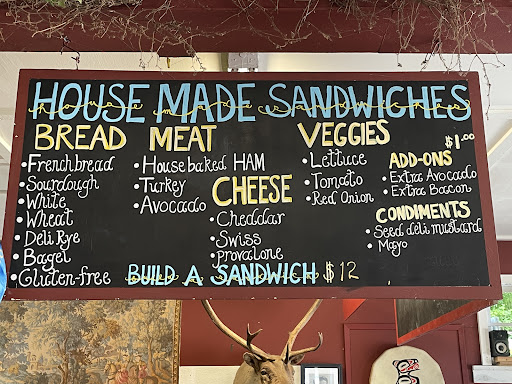 HOUSE MADE SANDWICHES
house made sandwiches
BREAD
• French bread
• Sourdough
• White
• Wheat
• Deli Rye
• Bagel
• Gluten-free
MEAT
• House baked HAM
• Turkey
• Avocado
CHEESE
• Cheddar
• Swiss
• provalone
VEGGIES
• Lettuce
• Tomato
• Red Onion
$1.00
ADD-ONS
• Extra Avocado
• Extra Bacon
CONDIMENTS
• Seed deli mustard
• Mayo
BUILD A SANDWICH $12